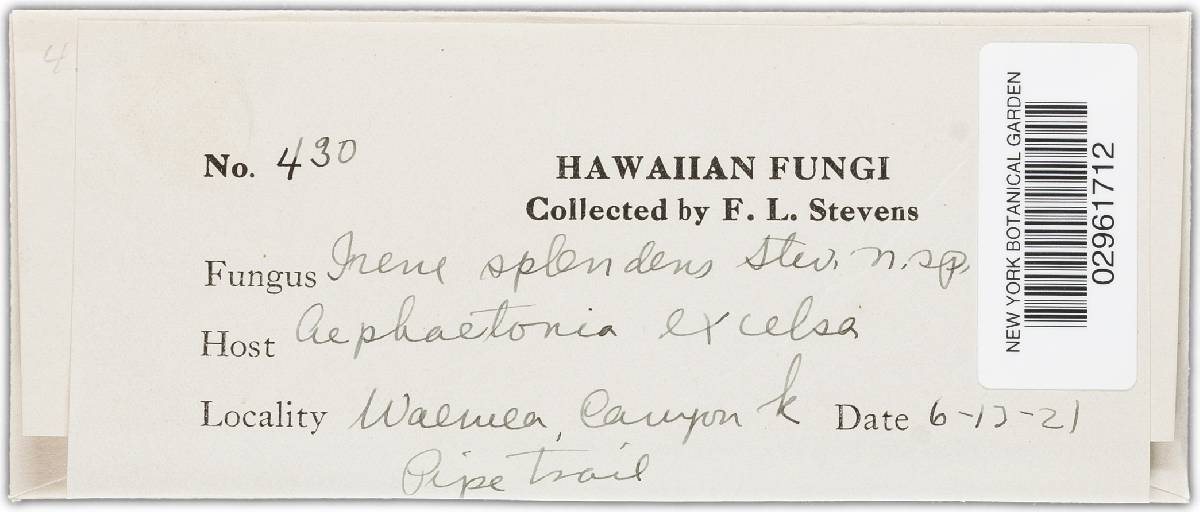 4
No. 430
HAWAIIAN FUNGI
Collected by F. L. Stevens
Fungus Irene splendens Stev. n.sp.
Host Aephaetonia excelsa
Locality Waemea, Canyon k Date 6-13-21
Pipe trail
NEW YORK BOTANICAL GARDEN
02961712